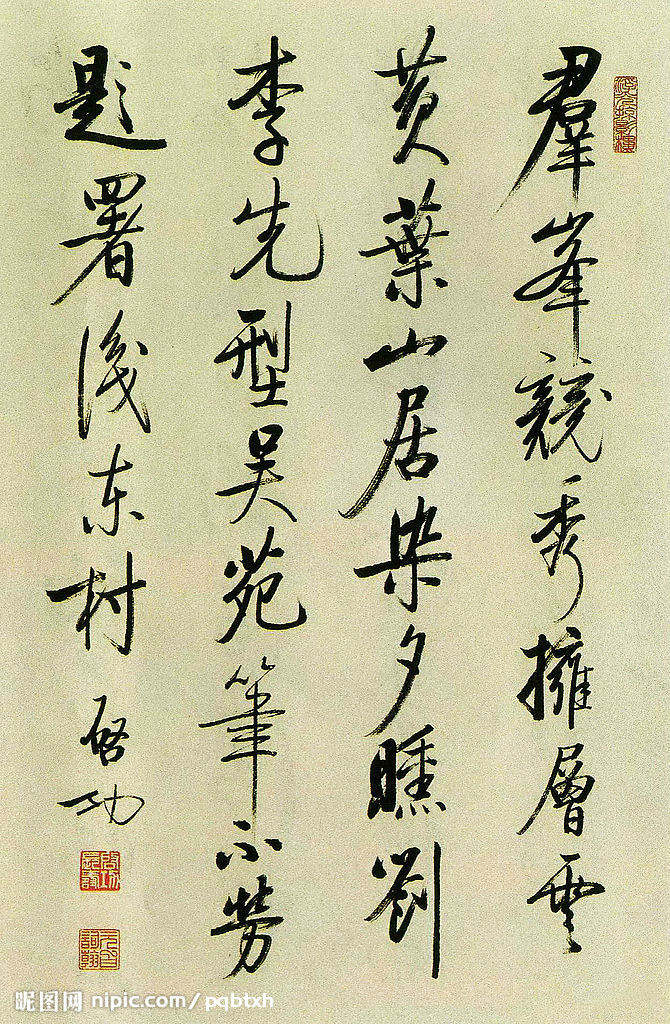 羣峯競秀擁層雲
黄葉山居染夕曛劉
李先型吴苑筆不勞
題署後东村
啓功
昵图网 nipic.com/pqbtxh